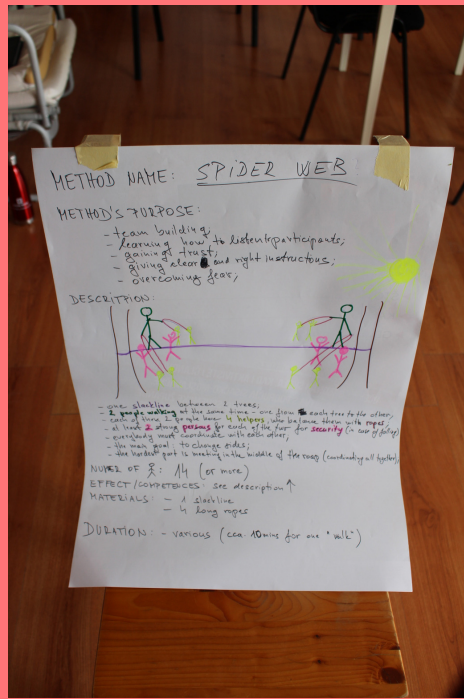 METHOD NAME: SPIDER WEB
METHOD'S PURPOSE:
- team building;
- learning how to listen participants;
- gaining trust;
- giving clear and right instructons;
- overcoming fear;
DESCRITPION:
- one slackline between 2 trees;
- 2 people walking at the same time - one from each tree to the other;
- each of those 2 people have 4 helpers, who balance them with ropes;
- at least 2 strong persons for each of the two for security (in case of falling)
- everybody must coordinate with each other;
- the main goal: to change sides;
- the hardest part is meeting in the middle of the (coordinating all together)
OF : 14 (or more)
EFFECT/COMPETENCES: see description ↑
MATERIALS: - 1 slackline
- 4 long ropes
DURATION: - various (cca. 10mins for one "walk")